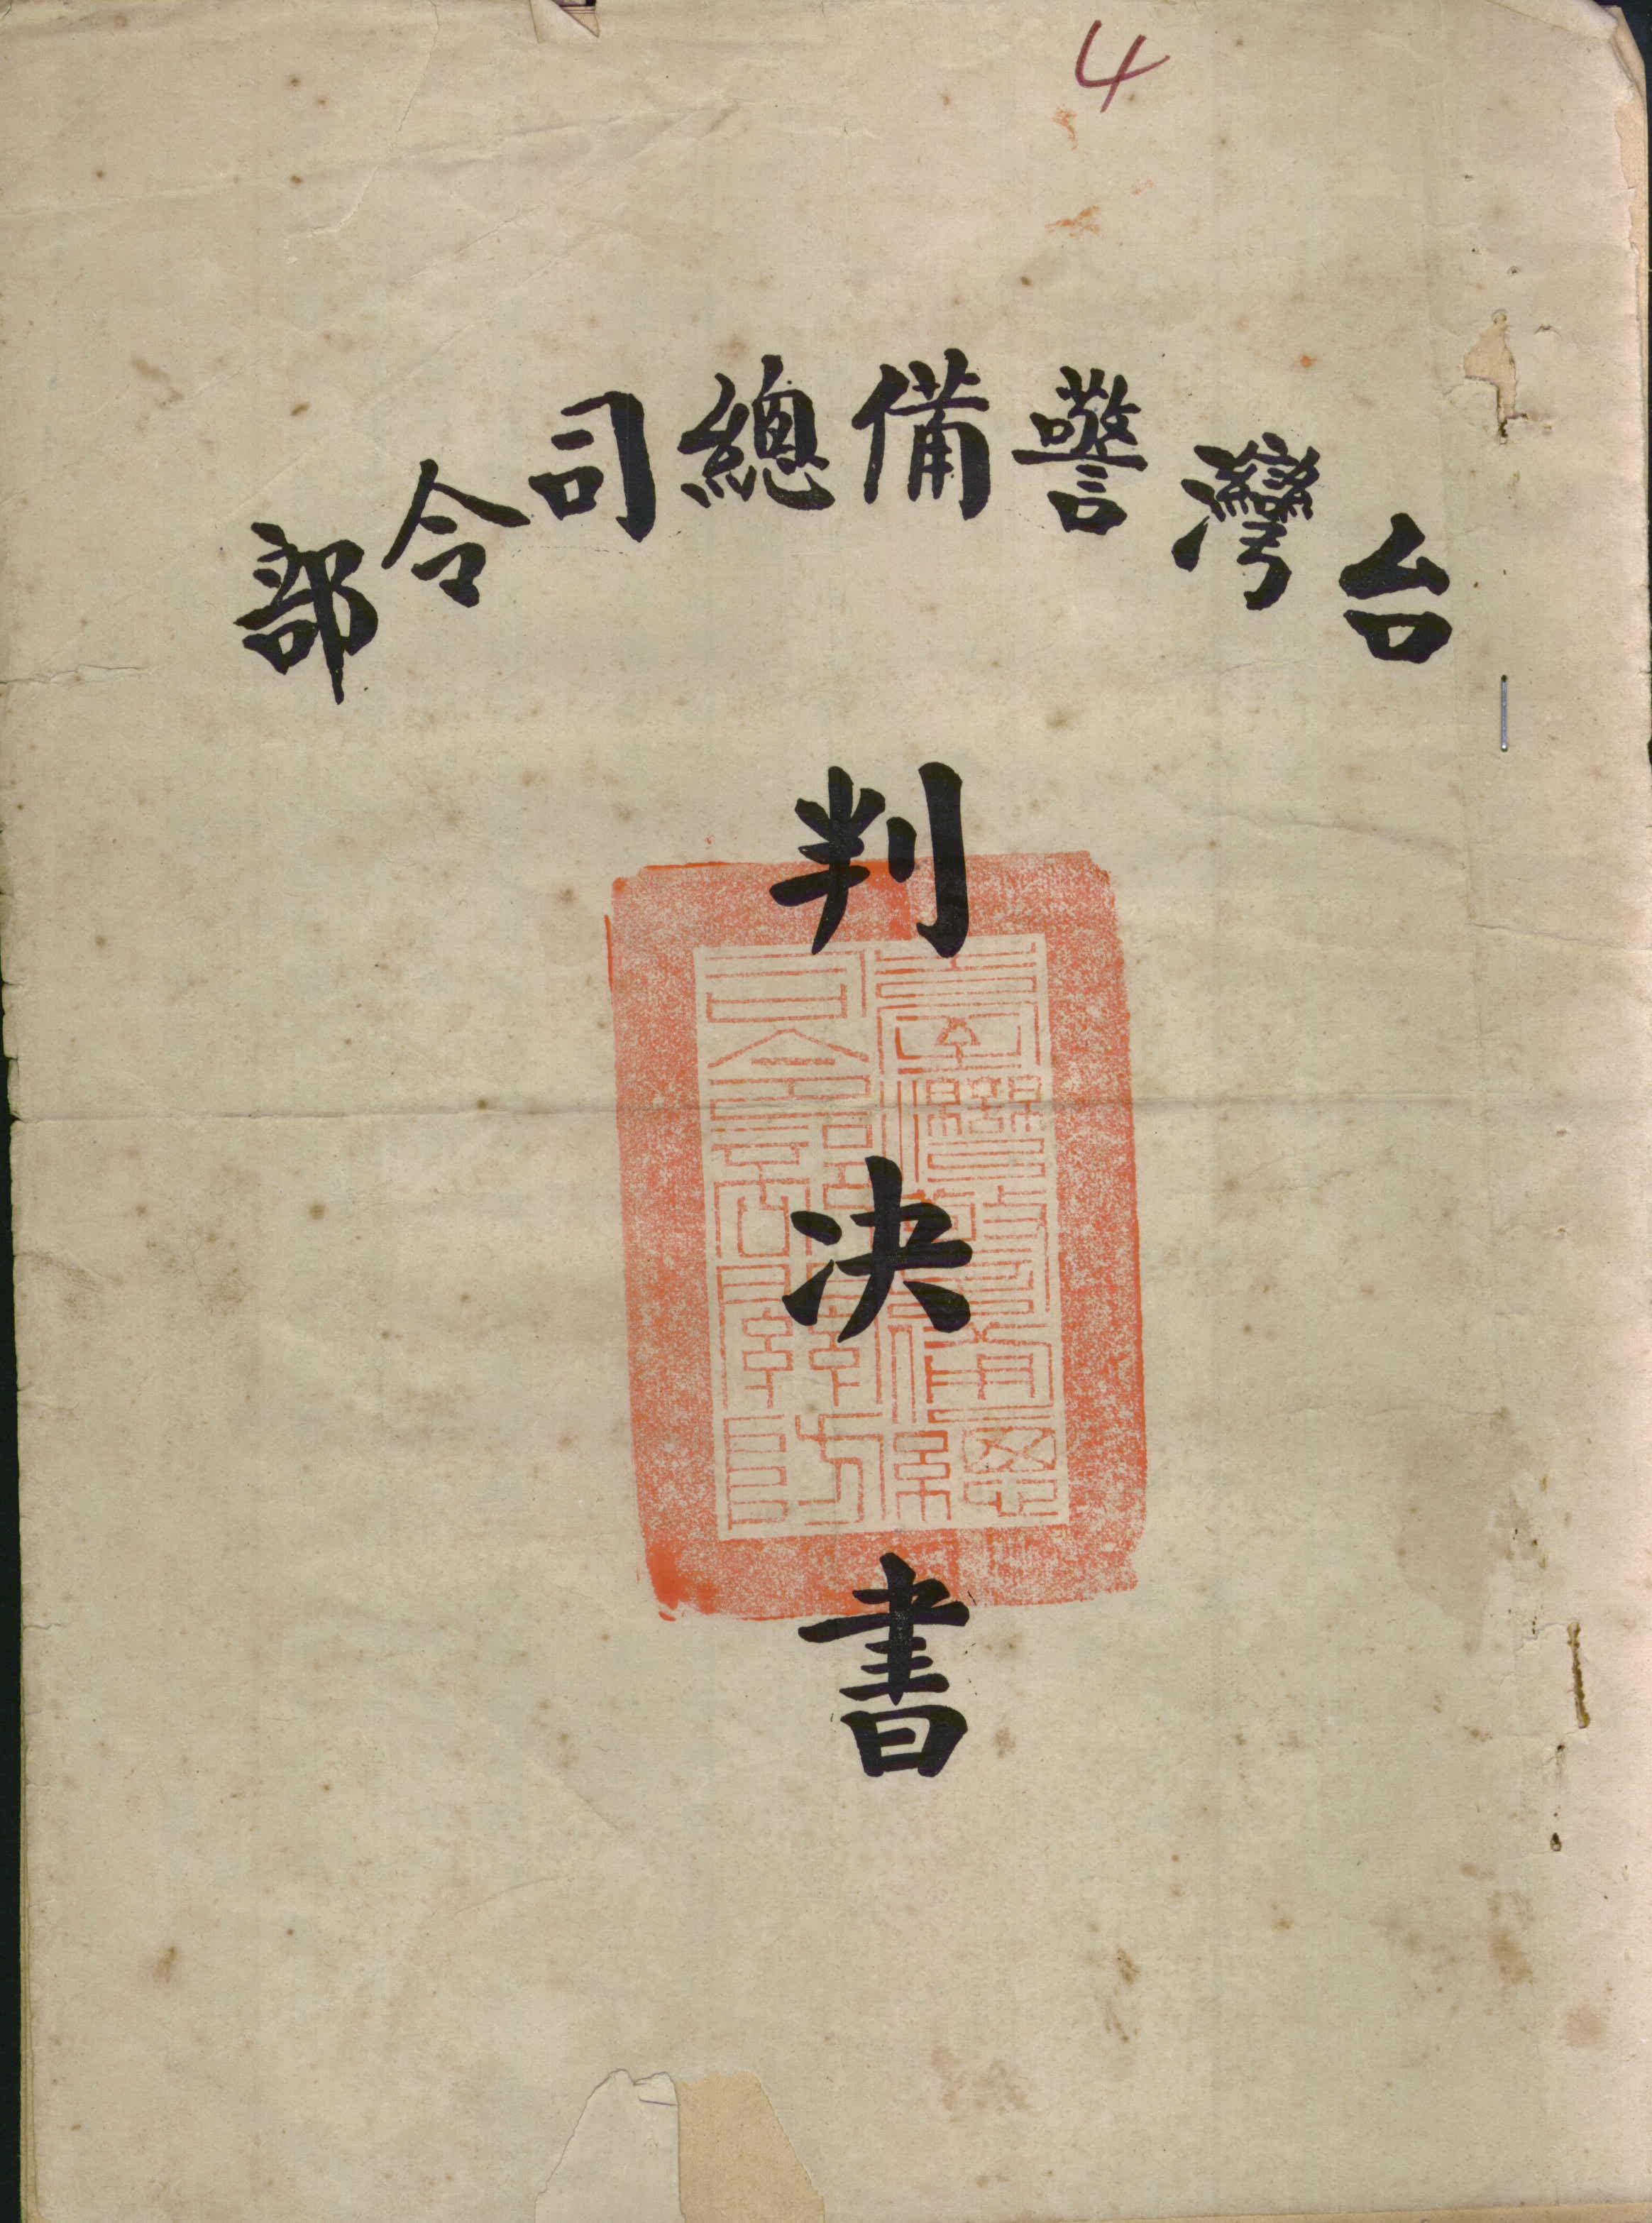 4
台灣警備總司令部
判決書